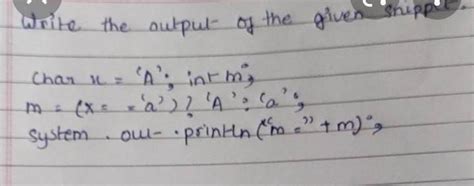 Write the output of the given snippet
char x = 'A'; int m;
m = (x = = 'a') ? 'A' : 'a';
System . out . println ("m =" + m);